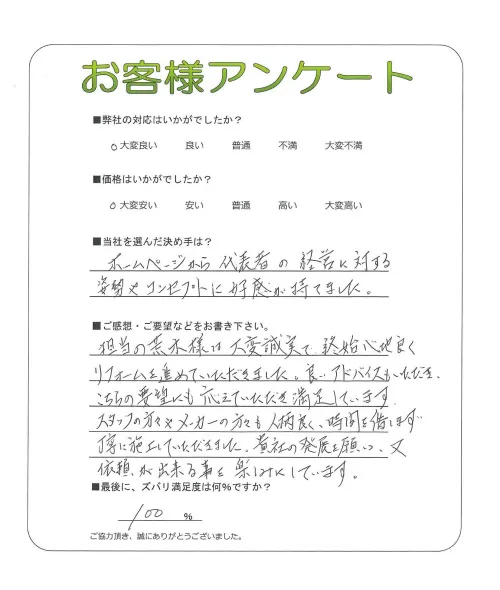 お客様アンケート
■弊社の対応はいかがでしたか？
○大変良い 良い 普通 不満 大変不満
■価格はいかがでしたか？
○大変安い 安い 普通 高い 大変高い
■当社を選んだ決め手は？
ホームページから代表者の経営に対する
姿勢やコンセプトに好感が持てました。
■ご感想・ご要望などをお書き下さい。
担当の荒木様は大変誠実で、終始心地良く
リフォームを進めていただきました。良いアドバイスもいただき、
こちらの要望にも応えていただき満足しています。
スタッフの方々やメーカーの方々も人柄良く、時間を惜しまず
丁寧に施工していただきました。貴社の発展を願いつつ、又
依頼が出来る事を楽しみにしています。
■最後に、ズバリ満足度は何％ですか？
100 ％
ご協力頂き、誠にありがとうございました。